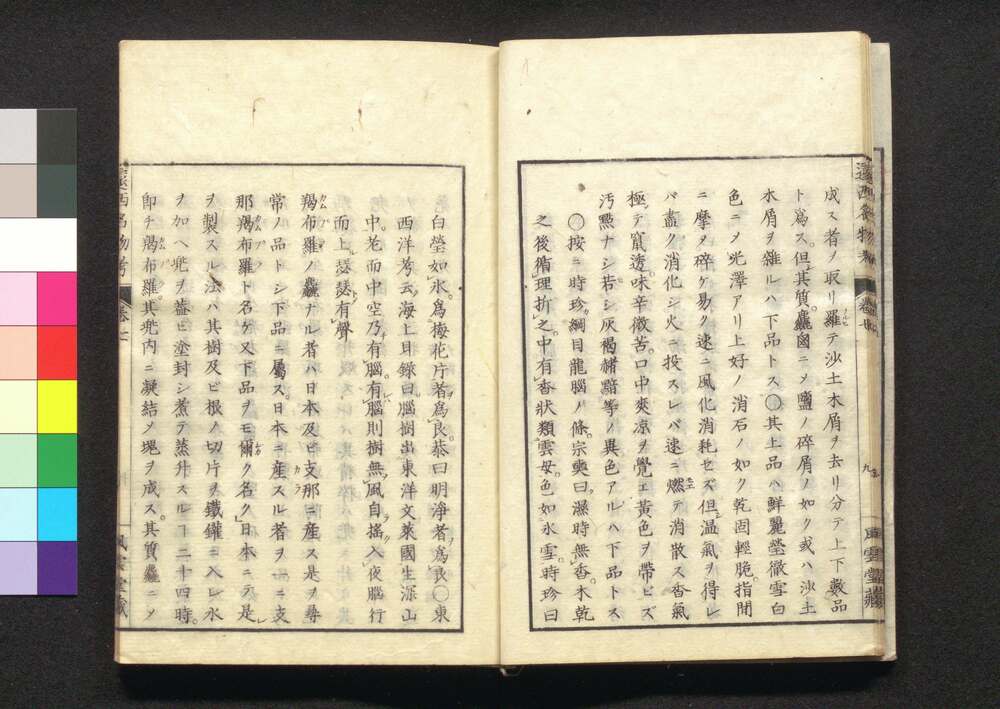 成ス者ヲ取リ羅テ沙土木屑ヲ去リ分テ上下數品
ト爲ス。但其質麤鹵ニノ鹽ノ碎屑ノ如ク或ハ沙土
木屑ヲ雜ルハ下品トス〇其上品ハ鮮麗瑩徹雪白
色ニノ光澤アリ上好ノ消石ノ如ク乾固輕脆指間
ニ摩ヲ碎ケ易ク速ニ風化消耗セズ但温氣ヲ得レ
バ盡ク消化シ火ニ投スレバ速ニ燃テ消散ス香氣
極テ竄透。味辛微苦口中爽凉ヲ覺エ黃色ヲ帶ビズ
汚㸃ナシ若シ灰褐赭黯等ノ異色アルハ下品トス
〇按ニ時珍綱目龍腦ノ條。宗奭曰濕時無香。木乾
之後循理折之。中有香狀類雲母。色如氷雪。時珍曰
遠西名物考
風雲堂藏
白瑩如氷。爲梅花片者爲良。恭曰明淨者爲良〇東
西洋考云海上目錄曰腦樹出東洋文萊國生深山
中。老而中空乃有腦。有腦則樹無風自搖入夜腦行
而上。瑟瑟有聲
羯布羅ノ麤ナル者ハ日本及ヒ支那ニ產ス是ヲ尋
常ノ品トシ下品ニ屬ス。日本ニ產スル者ヲ一ニ支
那羯布羅ト名ケ又下品ヲモ爾ク名ク日本ニテ是
ヲ製スル法ハ其樹及ビ根ノ切片ヲ鐵鑵ニ入レ水
ヲ加ヘ兠ヲ蓋ヒ塗封シ煮テ蒸升スルヿ二十四時。
卽チ羯布羅。其兠內ニ凝結ノ塊ヲ成ス。其質麤ニノ
遠西名物考